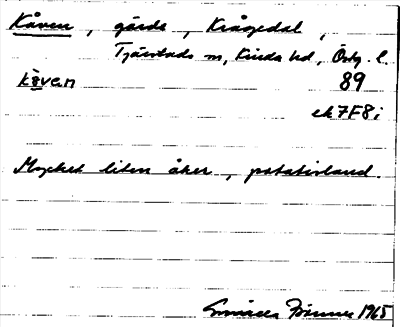 Kåven, gärde, Krågedal,
Tjärstads sn, Kinda hd, Östg. l.
kåvan 89
ek 7F8i
Mycket liten åker, potatisland.
1965